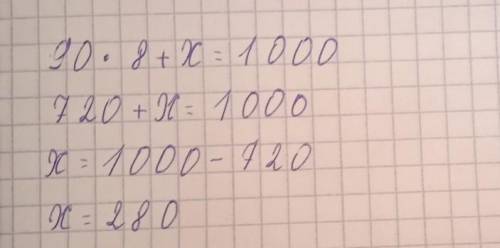 90 · 8 + x = 1000
720 + x = 1000
x = 1000 - 720
x = 280